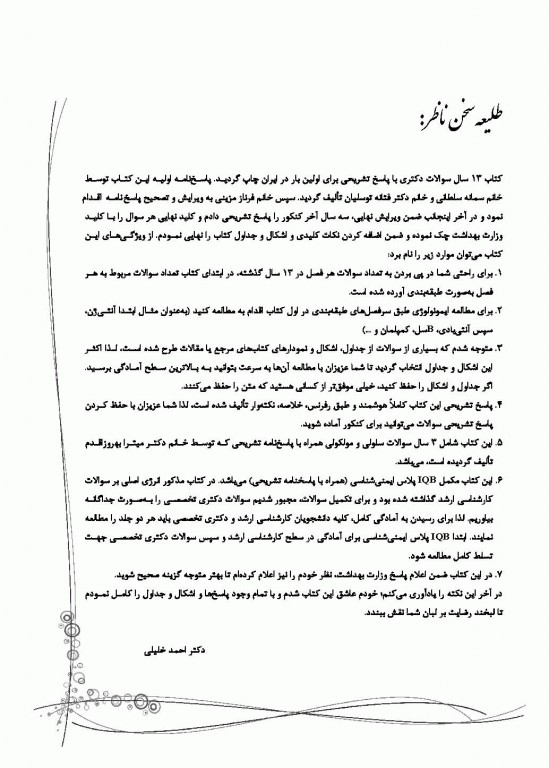 طلیعه سخن ناظر:
کتاب ۱۳ سال سوالات دکتری با پاسخ تشریحی برای اولین بار در ایران چاپ گردیـد. پاسـخ‌نامـه اولیـه ایـن کتـاب توسـط
خانم سمانه سلطانی و خانم دکتر فتانه توسلیان تألیف گردید. سپس خانم فرناز مزینی به ویرایش و تصحیح پاسخ‌نامـه اقـدام
نمود و در آخر اینجانب ضمن ویرایش نهایی، سه سال آخر کنکور را پاسخ تشریحی دادم و کلید نهایی هر سوال را بـا کلیـد
وزارت بهداشت چک نموده و ضمن اضافه کردن نکات کلیدی و اشکال و جداول کتاب را نهایی نمـودم. از ویژگـی‌هـای ایـن
کتاب می‌توان موارد زیر را نام برد:
۱. برای راحتی شما در پی بردن به تعداد سوالات هر فصل در ۱۳ سال گذشته، در ابتدای کتاب تعداد سوالات مربوط به هـر
فصل به‌صورت طبقه‌بندی آورده شده است.
۲. برای مطالعه ایمونولوژی طبق سرفصل‌های طبقه‌بندی در اول کتاب اقدام به مطالعه کنید (به‌عنوان مثـال ابتـدا آنتـی‌ژن،
سپس آنتی‌بادی، Bسل، کمپلمان و ...)
۳. متوجه شدم که بسیاری از سوالات از جداول، اشکال و نمودارهای کتاب‌های مرجع یا مقالات طرح شده اسـت، لـذا اکثـر
این اشکال و جداول انتخاب گردید تا شما عزیزان با مطالعه آن‌ها به سرعت بتوانید بـه بـالاترین سـطح آمـادگی برسـید.
اگر جداول و اشکال را حفظ کنید، خیلی موفق‌تر از کسانی هستید که متن را حفظ می‌کنند.
۴. پاسخ تشریحی این کتاب کاملاً هوشمند و طبق رفرنس، خلاصه، نکته‌وار تألیف شده است، لذا شما عزیزان با حفظ کـردن
پاسخ تشریحی سوالات می‌توانید برای کنکور آماده شوید.
۵. این کتاب شامل ۳ سال سوالات سلولی و مولکولی همراه با پاسخ‌نامه تشریحی کـه توسـط خـانم دکتـر میتـرا بهروزاقـدم
تألیف گردیده است، می‌باشد.
۶. این کتاب مکمل IQB پلاس ایمنی‌شناسی (همراه با پاسخنامه تشریحی) می‌باشد. در کتاب مذکور انرژی اصلی بر سوالات
کارشناسی ارشد گذاشته شده بود و برای تکمیل سوالات، مجبور شدیم سوالات دکتری تخصصـی را بـه‌صـورت جداگانـه
بیاوریم. لذا برای رسیدن به آمادگی کامل، کلیه دانشجویان کارشناسی ارشد و دکتری تخصصی باید هر دو جلد را مطالعه
نمایند. ابتدا IQB پلاس ایمنی‌شناسی برای آمادگی در سطح کارشناسی ارشد و سپس سوالات دکتری تخصصـی جهـت
تسلط کامل مطالعه شود.
۷. در این کتاب ضمن اعلام پاسخ وزارت بهداشت، نظر خودم را نیز اعلام کرده‌ام تا بهتر متوجه گزینه صحیح شوید.
در آخر این نکته را یادآوری می‌کنم؛ خودم عاشق این کتاب شدم و با تمام وجود پاسخ‌ها و اشکال و جداول را کامـل نمـودم
تا لبخند رضایت بر لبان شما نقش ببندد.
دکتر احمد خلیلی